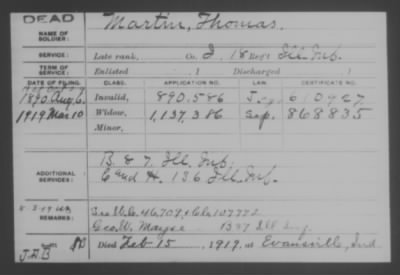 DEAD
NAME OF SOLDIER: Martin, Thomas.
SERVICE: Late rank, Co. I, 18 Reg't Ill. Inf.
TERM OF SERVICE: Enlisted , 1 Discharged , 1
DATE OF FILING. CLASS. APPLICATION NO. LAW. CERTIFICATE NO.
1890 Aug 6. Invalid, 890.586
1919 Mar 10 Widow, 1,137,386 Sep. 868835
Minor,
ADDITIONAL SERVICES: B. & 7. Ill. Inf.
C and H. 136 Ill. Inf.
REMARKS:
Geo. W.
Died Feb 15, 1919, at Evansville, Ind